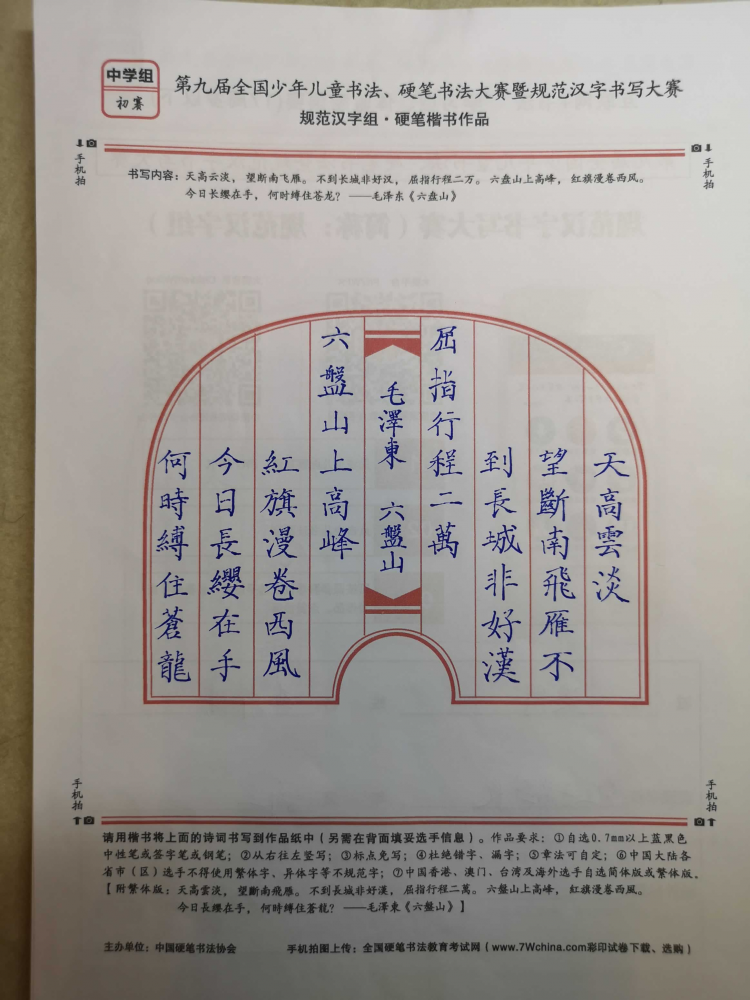 中学组
初赛
第九届全国少年儿童书法、硬笔书法大赛暨规范汉字书写大赛
规范汉字组·硬笔楷书作品
手机拍
手机拍
书写内容：天高云淡，望断南飞雁。不到长城非好汉，屈指行程二万。六盘山上高峰，红旗漫卷西风。
今日长缨在手，何时缚住苍龙？——毛泽东《六盘山》
天高雲淡
望斷南飛雁不
到長城非好漢
屈指行程二萬
毛澤東 六盤山
六盤山上高峰
紅旗漫卷西風
今日長纓在手
何時縛住蒼龍
手机拍
手机拍
请用楷书将上面的诗词书写到作品纸中（另需在背面填妥选手信息）。作品要求：①自选0.7mm以上蓝黑色
中性笔或签字笔或钢笔；②从右往左竖写；③标点免写；④杜绝错字、漏字；⑤章法可自定；⑥中国大陆各
省市（区）选手不得使用繁体字、异体字等不规范字；⑦中国香港、澳门、台湾及海外选手自选简体版或繁体版。
【附繁体版：天高雲淡，望斷南飛雁。不到長城非好漢，屈指行程二萬。六盤山上高峰，紅旗漫卷西風。
今日長纓在手，何時縛住蒼龍？——毛澤東《六盤山》】
主办单位：中国硬笔书法协会
手机拍图上传：全国硬笔书法教育考试网（www.7Wchina.com彩印试卷下载、选购）